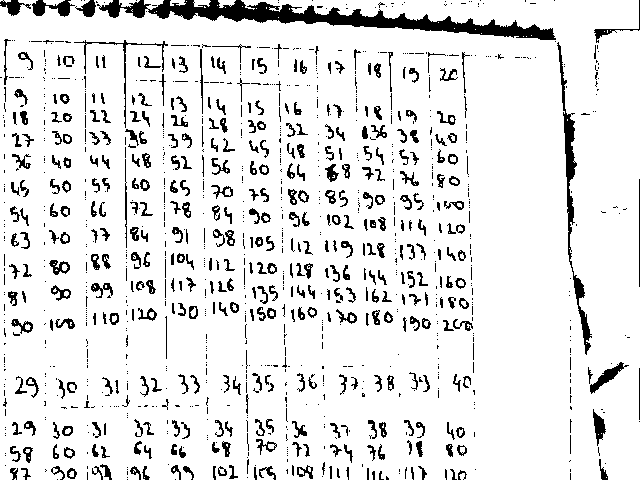 9 10 11 12 13 14 15 16 17 18 19 20
9 10 11 12 13 14 15 16 17 18 19 20
18 20 22 24 26 28 30 32 34 136 38 40
27 30 33 36 39 42 45 48 51 54 57 60
36 40 44 48 52 56 60 64 68 72 76 80
45 50 55 60 65 70 75 80 85 90 95 100
54 60 66 72 78 84 90 96 102 108 114 120
63 70 77 84 91 98 105 112 119 128 133 140
72 80 88 96 104 112 120 128 136 144 152 160
81 90 99 108 117 126 135 144 153 162 171 180
90 100 110 120 130 140 150 160 170 180 190 200
29 30 31 32 33 34 35 36 37 38 39 40
29 30 31 32 33 34 35 36 37 38 39 40
58 60 62 64 66 68 70 72 74 76 78 80
87 90 96 99 102 108 111 117 120